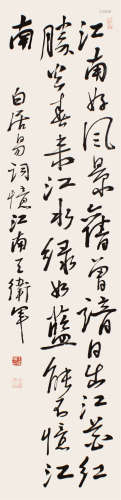 江南好风景旧曾谙日出江花红
胜火春来江水绿如蓝能不忆江
南
白居易词忆江南王卫军